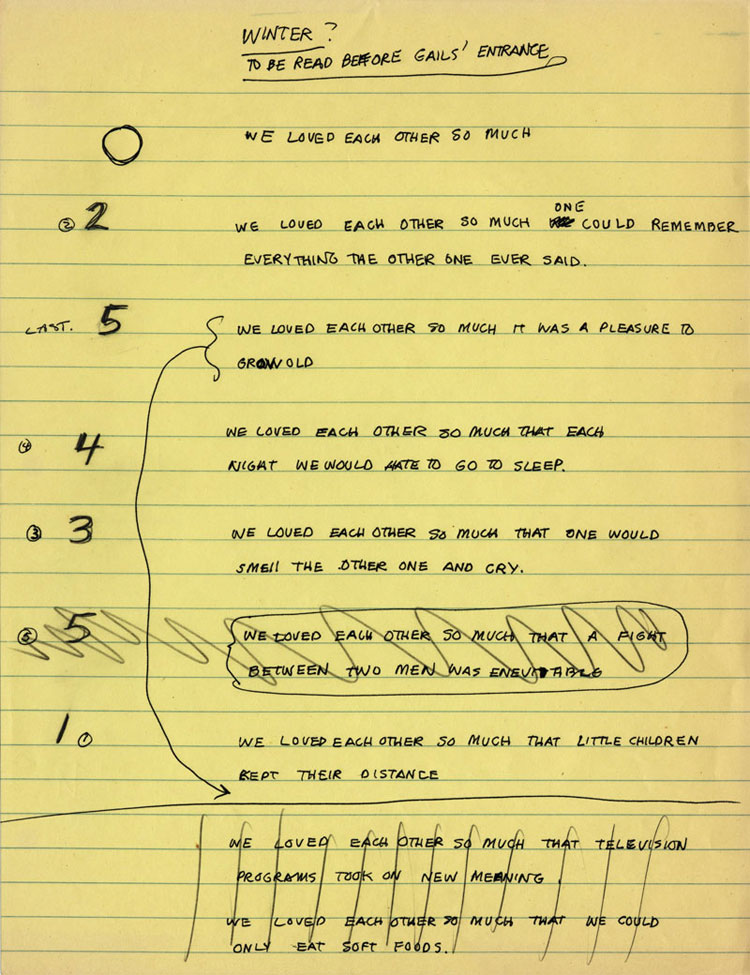 WINTER?
TO BE READ BEFORE GAILS' ENTRANCE
WE LOVED EACH OTHER SO MUCH
② 2 WE LOVED EACH OTHER SO MUCH ONE COULD REMEMBER
EVERYTHING THE OTHER ONE EVER SAID.
LAST. 5 WE LOVED EACH OTHER SO MUCH IT WAS A PLEASURE TO
GROW OLD
④ 4 WE LOVED EACH OTHER SO MUCH THAT EACH
NIGHT WE WOULD HATE TO GO TO SLEEP.
③ 3 WE LOVED EACH OTHER SO MUCH THAT ONE WOULD
SMELL THE OTHER ONE AND CRY.
⑤ 5 WE LOVED EACH OTHER SO MUCH THAT A FIGHT
BETWEEN TWO MEN WAS ENEVITABLE
1 ① WE LOVED EACH OTHER SO MUCH THAT LITTLE CHILDREN
KEPT THEIR DISTANCE
WE LOVED EACH OTHER SO MUCH THAT TELEVISION
PROGRAMS TOOK ON NEW MEANING.
WE LOVED EACH OTHER SO MUCH THAT WE COULD
ONLY EAT SOFT FOODS.